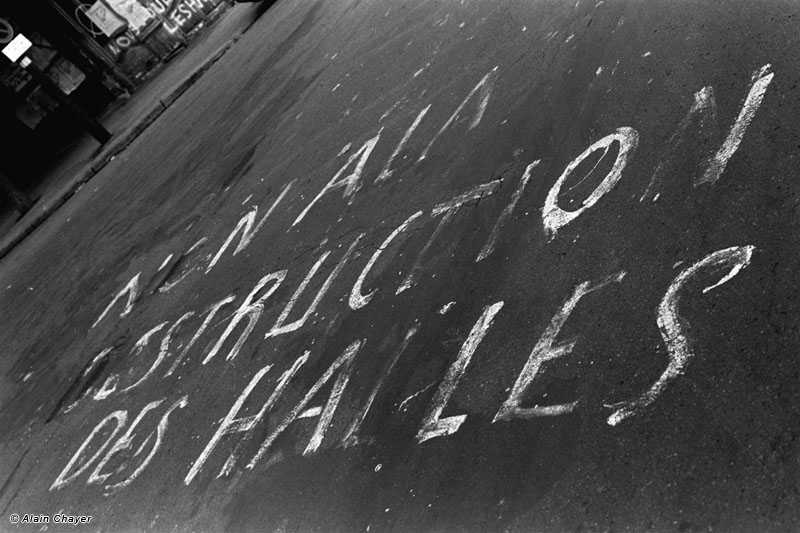 NON A LA
DESTRUCTION
DES HALLES
© Alain Chayer